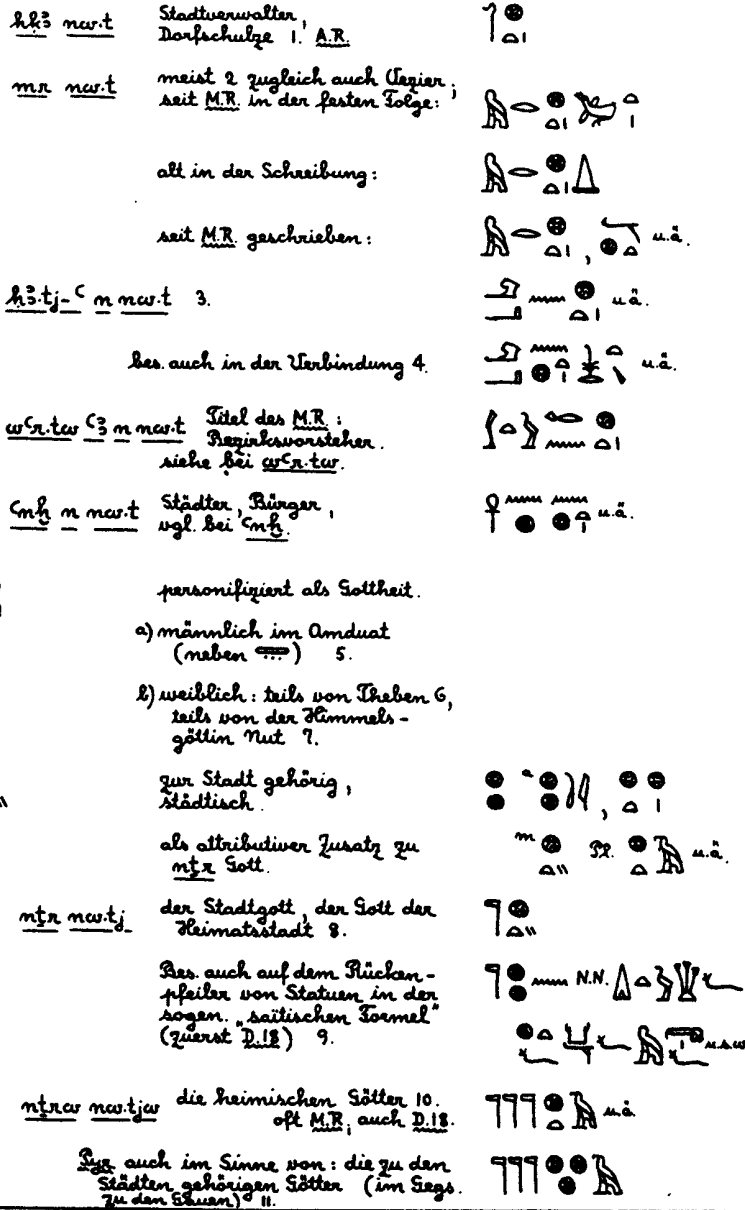 ḥḳꜣ nw.t Stadtverwalter,
Dorfschulze 1. A.R.
mr nw.t meist 2 zugleich auch Vezier;
seit M.R. in der festen Folge:
alt in der Schreibung:
seit M.R. geschrieben: , u.ä.
ḥꜣ.tj-ꜥ n nw.t 3. u.ä.
bes. auch in der Verbindung 4. u.ä.
wꜥr.tw ꜥꜣ n nw.t Titel des M.R.:
Bezirksvorsteher.
siehe bei wꜥr.tw.
ꜥnḫ n nw.t Städter, Bürger, u.ä.
vgl. bei ꜥnḫ.
personifiziert als Gottheit.
a) männlich im Amduat
(neben ) 5.
b) weiblich: teils von Theben 6,
teils von der Himmels-
göttin Nut 7.
zur Stadt gehörig,
städtisch.
als attributiver Zusatz zu m Pl. u.ä.
nṯr Gott.
nṯr nw.tj der Stadtgott, der Gott der
Heimatsstadt 8.
Bes. auch auf dem Rücken- N.N.
pfeiler von Statuen in der
sogen. „saïtischen Formel"
(zuerst D.18) 9. u.s.w
nṯrw nw.tjw die heimischen Götter 10. u.ä
oft M.R., auch D.18.
Pyr auch im Sinne von: die zu den
Städten gehörigen Götter (im Gegs.
zu den Gauen) 11.